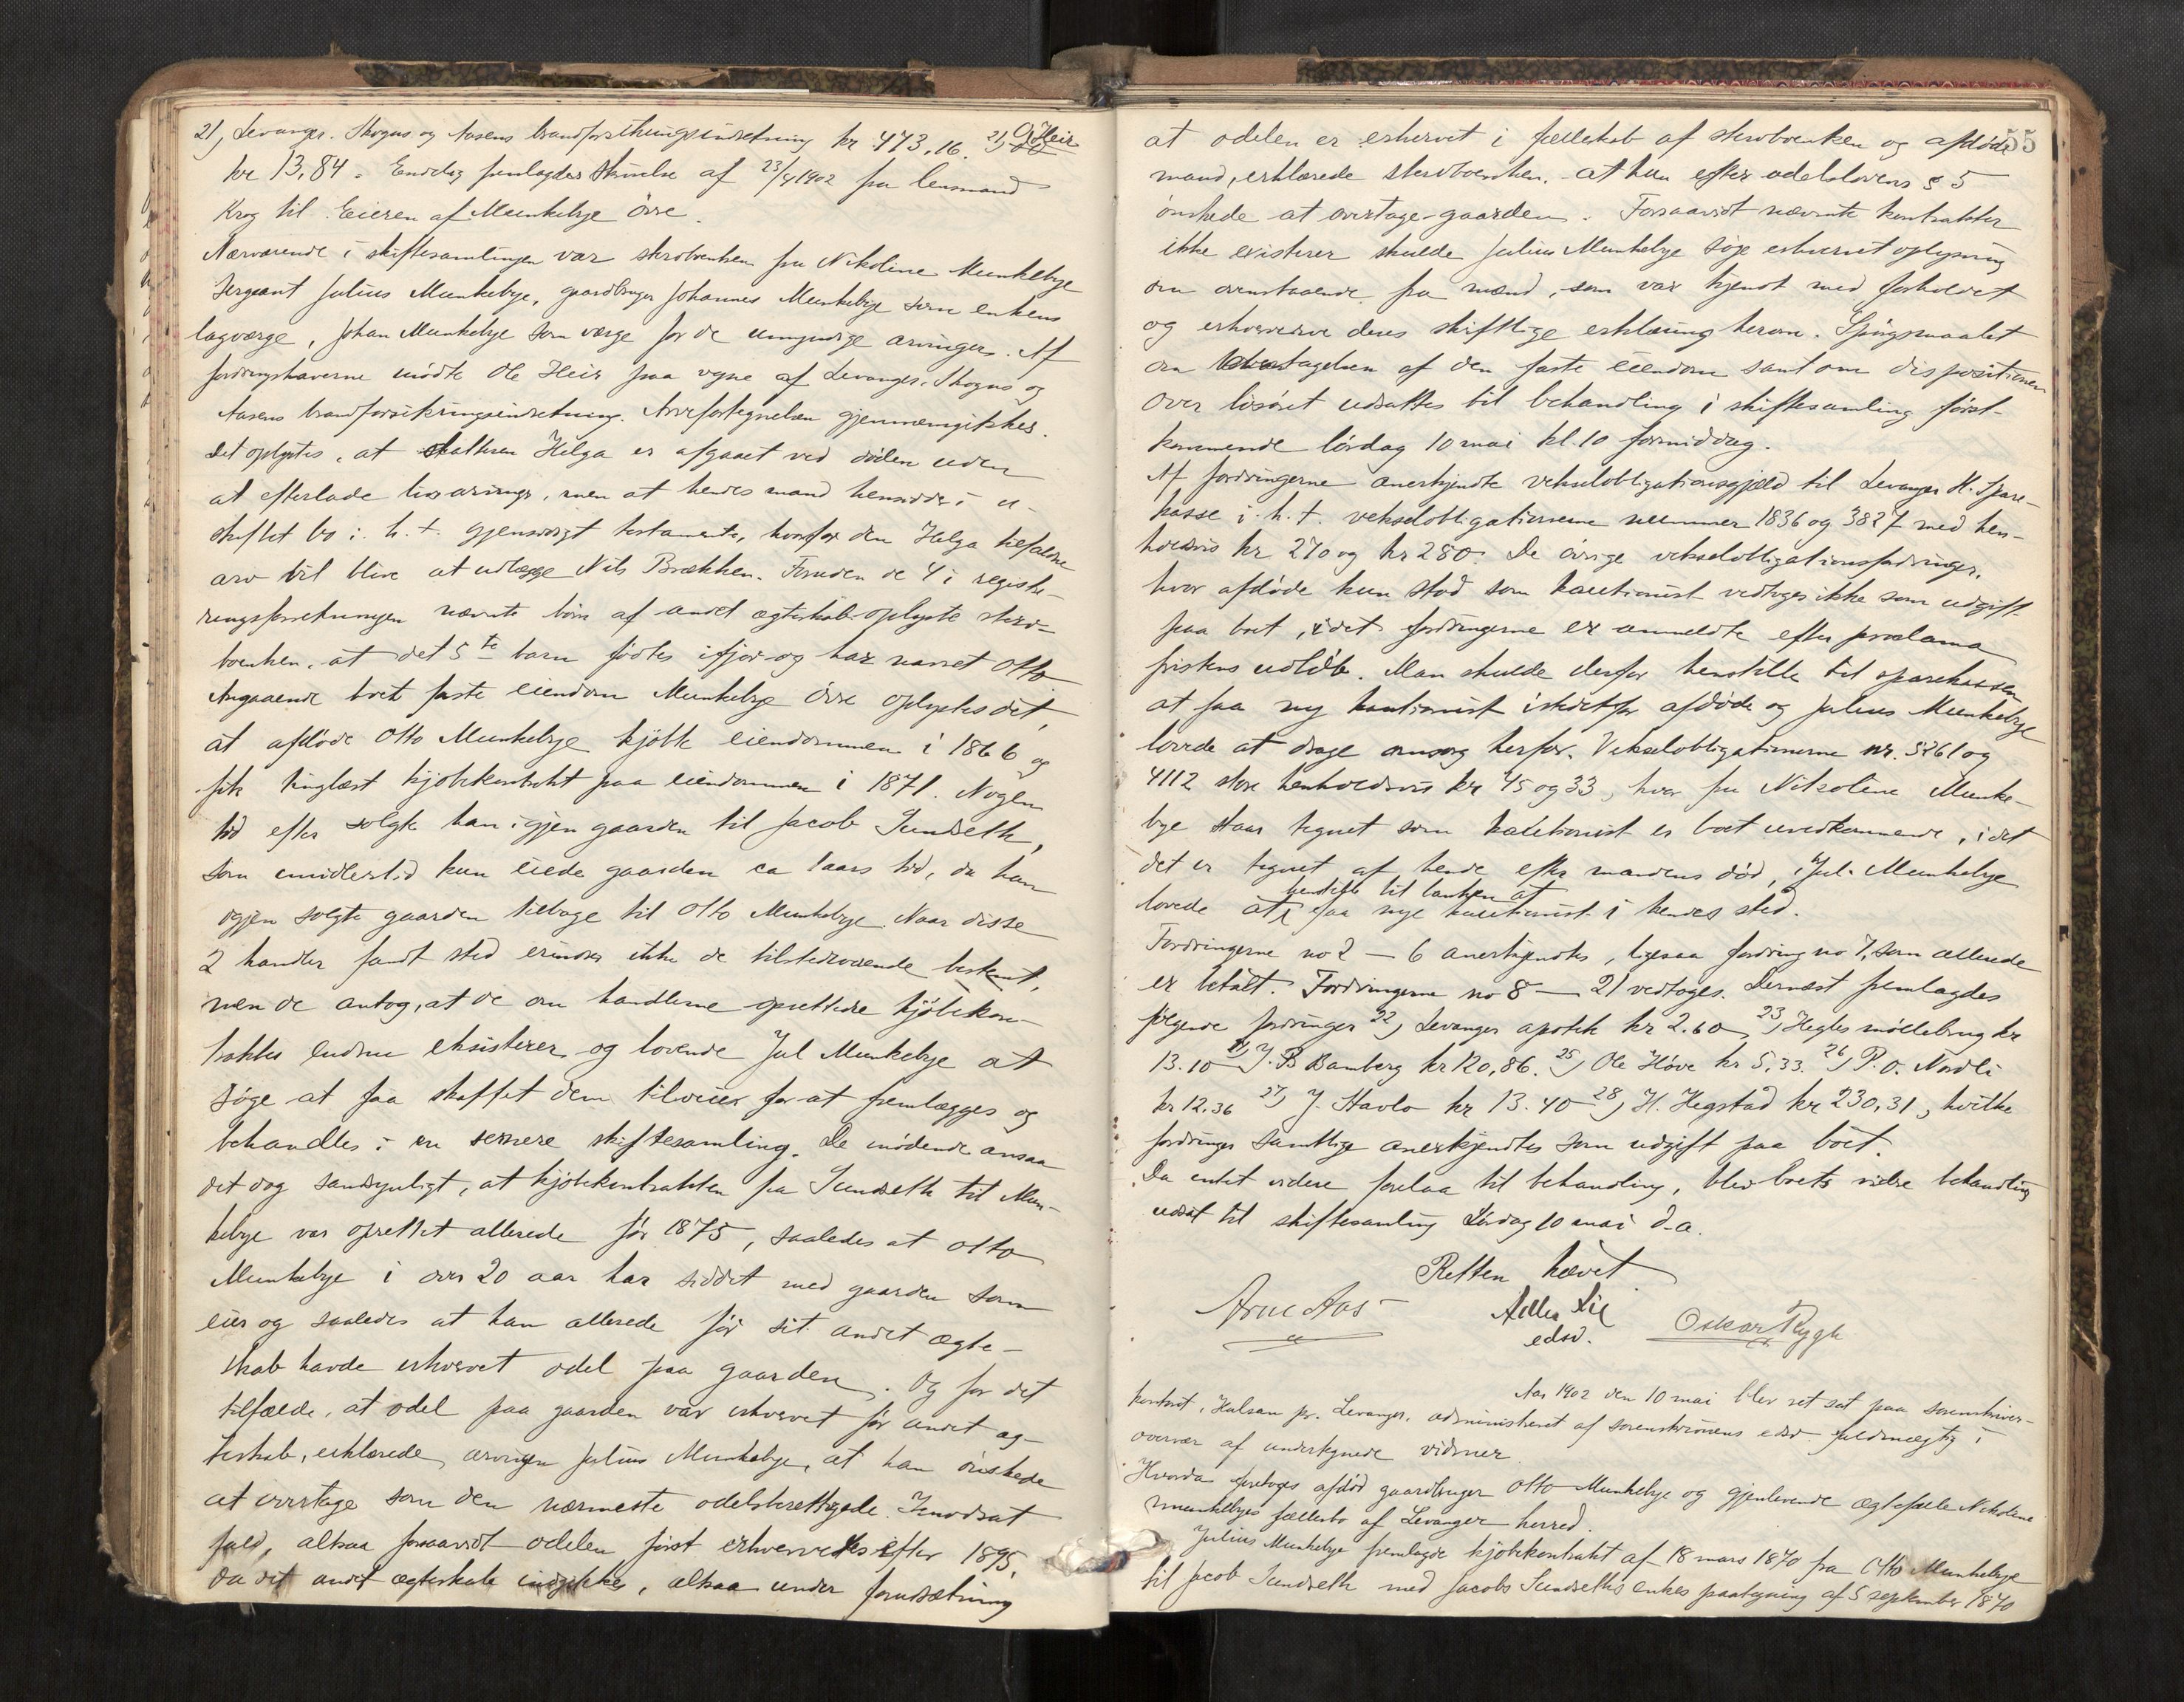 21, Levanger. Skogns og Aasens brandforsikringsindretning kr 473,16. 21, O. Heir
kr 13,84. Endelig fremlagdes skrivelse af 23/4 1902 fra lensmand
Krog til Eieren af Munkebye övre.
Nærværende i skiftesamlingen var sterboenken fru Nikoline Munkebye
Sergeant Julius Munkebye, gaardbruger Johannes Munkebye som enkens
lagværge, Johan Munkebye som værge for de umyndige arvinger. Af
fordringshaverne mödte Ole Heir paa vegne af Levanger. Skogns og
Aasens brandforsikringsindretning. Arvefortegnelsen gjennemgikkes.
Det oplystes, at datteren Helga er afgaaet ved döden uden
at efterlade livsarvinger, men at hendes mand hensidder i u-
skiftet bo i h. t. gjensidigt testamente, hvorfor den Helga tilfaldne
arv vil blive at udlægge Nils Brækken. Foruden de 4 i registe-
ringsforretningen nævnte börn af andet ægteskab oplyste sterv-
boenken, at det 5te barn födtes ifjor og har navnet Otto
Angaaende boets faste eiendom Munkebye övre oplystes det,
at afdöde Otto Munkebye kjöbte eiendommen i 1866 og
fik tinglæst kjöbekontrakt paa eiendommen i 1871. Nogen
tid efter solgte han igjen gaarden til Jacob Sundseth,
som imidlertid kun eiede gaarden ca 1 aars tid, da han
igjen solgte gaarden tilbage til Otto Munkebye. Naar disse
2 handler fandt sted erindres ikke de tilstedeværende bestemt,
men de antog, at de om handlerne oprettede kjöbekon-
trakter endnu eksisterer og lovede Jul Munkebye at
söge at faa skaffet dem tilveie for at fremlægges og
behandles i en senere skiftesamling. De mödende ansaa
det dog sandsynligt, at kjöbekontrakten fra Sundseth til Mun-
kebye var oprettet allerede för 1875, saaledes at Otto
Munkebye i over 20 aar har siddet med gaarden som
eier og saaledes at han allerede för sit andet ægte-
skab havde erhvervet odel paa gaarden. Og for det
tilfælde, at odel paa gaarden var erhvervet för andet æg-
teskab, erklærede arvingen Julius Munkebye, at han önskede
at overtage som den nærmeste odelsberettigede. I modsat
fald, altsaa forsaavidt odelen först erhvervedes efter 1895,
da det andet ægteskab indgikkes, altsaa under forudsætning
55
at odelen er erhvervet i fælleskab af sterboenken og afdöde
mand, erklærede sterboenken, at hun efter odelslovens § 5
önskede at overtage gaarden. Forsaavidt nævnte kontrakter
ikke existerer skulde Julius Munkebye söge erhvervet oplysning
om ovenstaaende fra mænd, som var kjendt med forholdet
og erhverve deres skriftlige erklæring herom. Spörgsmaalet
om overtagelsen af den faste eiendom samt om dispositionen
over lösöret udsattes til behandling i skiftesamling först-
kommende lördag 10 mai kl. 10 formiddag.
Af fordringerne anerkjendte vekselobligationsgjæld til Levanger H. Spare-
kasse i h. t. vekselobligationerne nummer 1836 og 3827 med hen-
holdsvis kr 270 og kr 280. De övrige vekselobligationsfordringer,
hvor afdöde kun stod som kautionist vedtoges ikke som udgift
paa boet, idet fordringerne er anmeldte efter proclama
fristens udlöb. Man skulde derfor henstille til sparekassen
at faa ny kautionist istedetfor afdöde og Julius Munkebye
lovede at drage omsorg herfor. Vekselobligationerne nr. 3261 og
4112 store henholdsvis kr 45 og 33, hvor fru Nikoline Munke-
bye staar tegnet som kautionist er boet uvedkommende, idet
det er tegnet af hende efter mandens död, Jul. Munkebye
henstille til banken at
lovede at faa nye kautionist i hendes sted.
Fordringerne no 2 — 6 anerkjendtes, ligesaa fordring no 7, som allerede
er betalt. Fordringerne no 8 — 21 vedtoges. Dernæst fremlagdes
fölgende fordringer 22, Levanger apothek kr 2.60 23, Hegles möllebrug kr
13.10 24, J. B Bamberg kr 120,86. 25, Ole Höve kr 5,33. 26, P. O. Nordli
kr 12.36 27, J. Stavlo kr 13.40 28, H. Hegstad kr 230,31, hvilke
fordringer samtlige anerkjendtes som udgift paa boet.
Da intet videre forelaa til behandling, blev boets videre behandling
udsat til skiftesamling Lördag 10 mai d. a.
Retten hævet
Arne Aas Lie Oskar Rygh
edsv.
Aar 1902 den 10 mai blev ret sat paa sorenskriver-
kontoret, Halsan pr. Levanger, administreret af sorenskriverens edsv. fuldmægtig i
overvær af undertegnede vidner.
Hvorda foretoges afdöd gaardbruger Otto Munkebye og gjenlevende ægtefælle Nikoline
Munkebyes fællesbo af Levanger herred.
Julius Munkebye fremlagde kjöbekontrakt af 18 mars 1870 fra Otto Munkebye
til Jacob Sundseth med Jacobs Sundseths enkes paategning af 5 september 1870